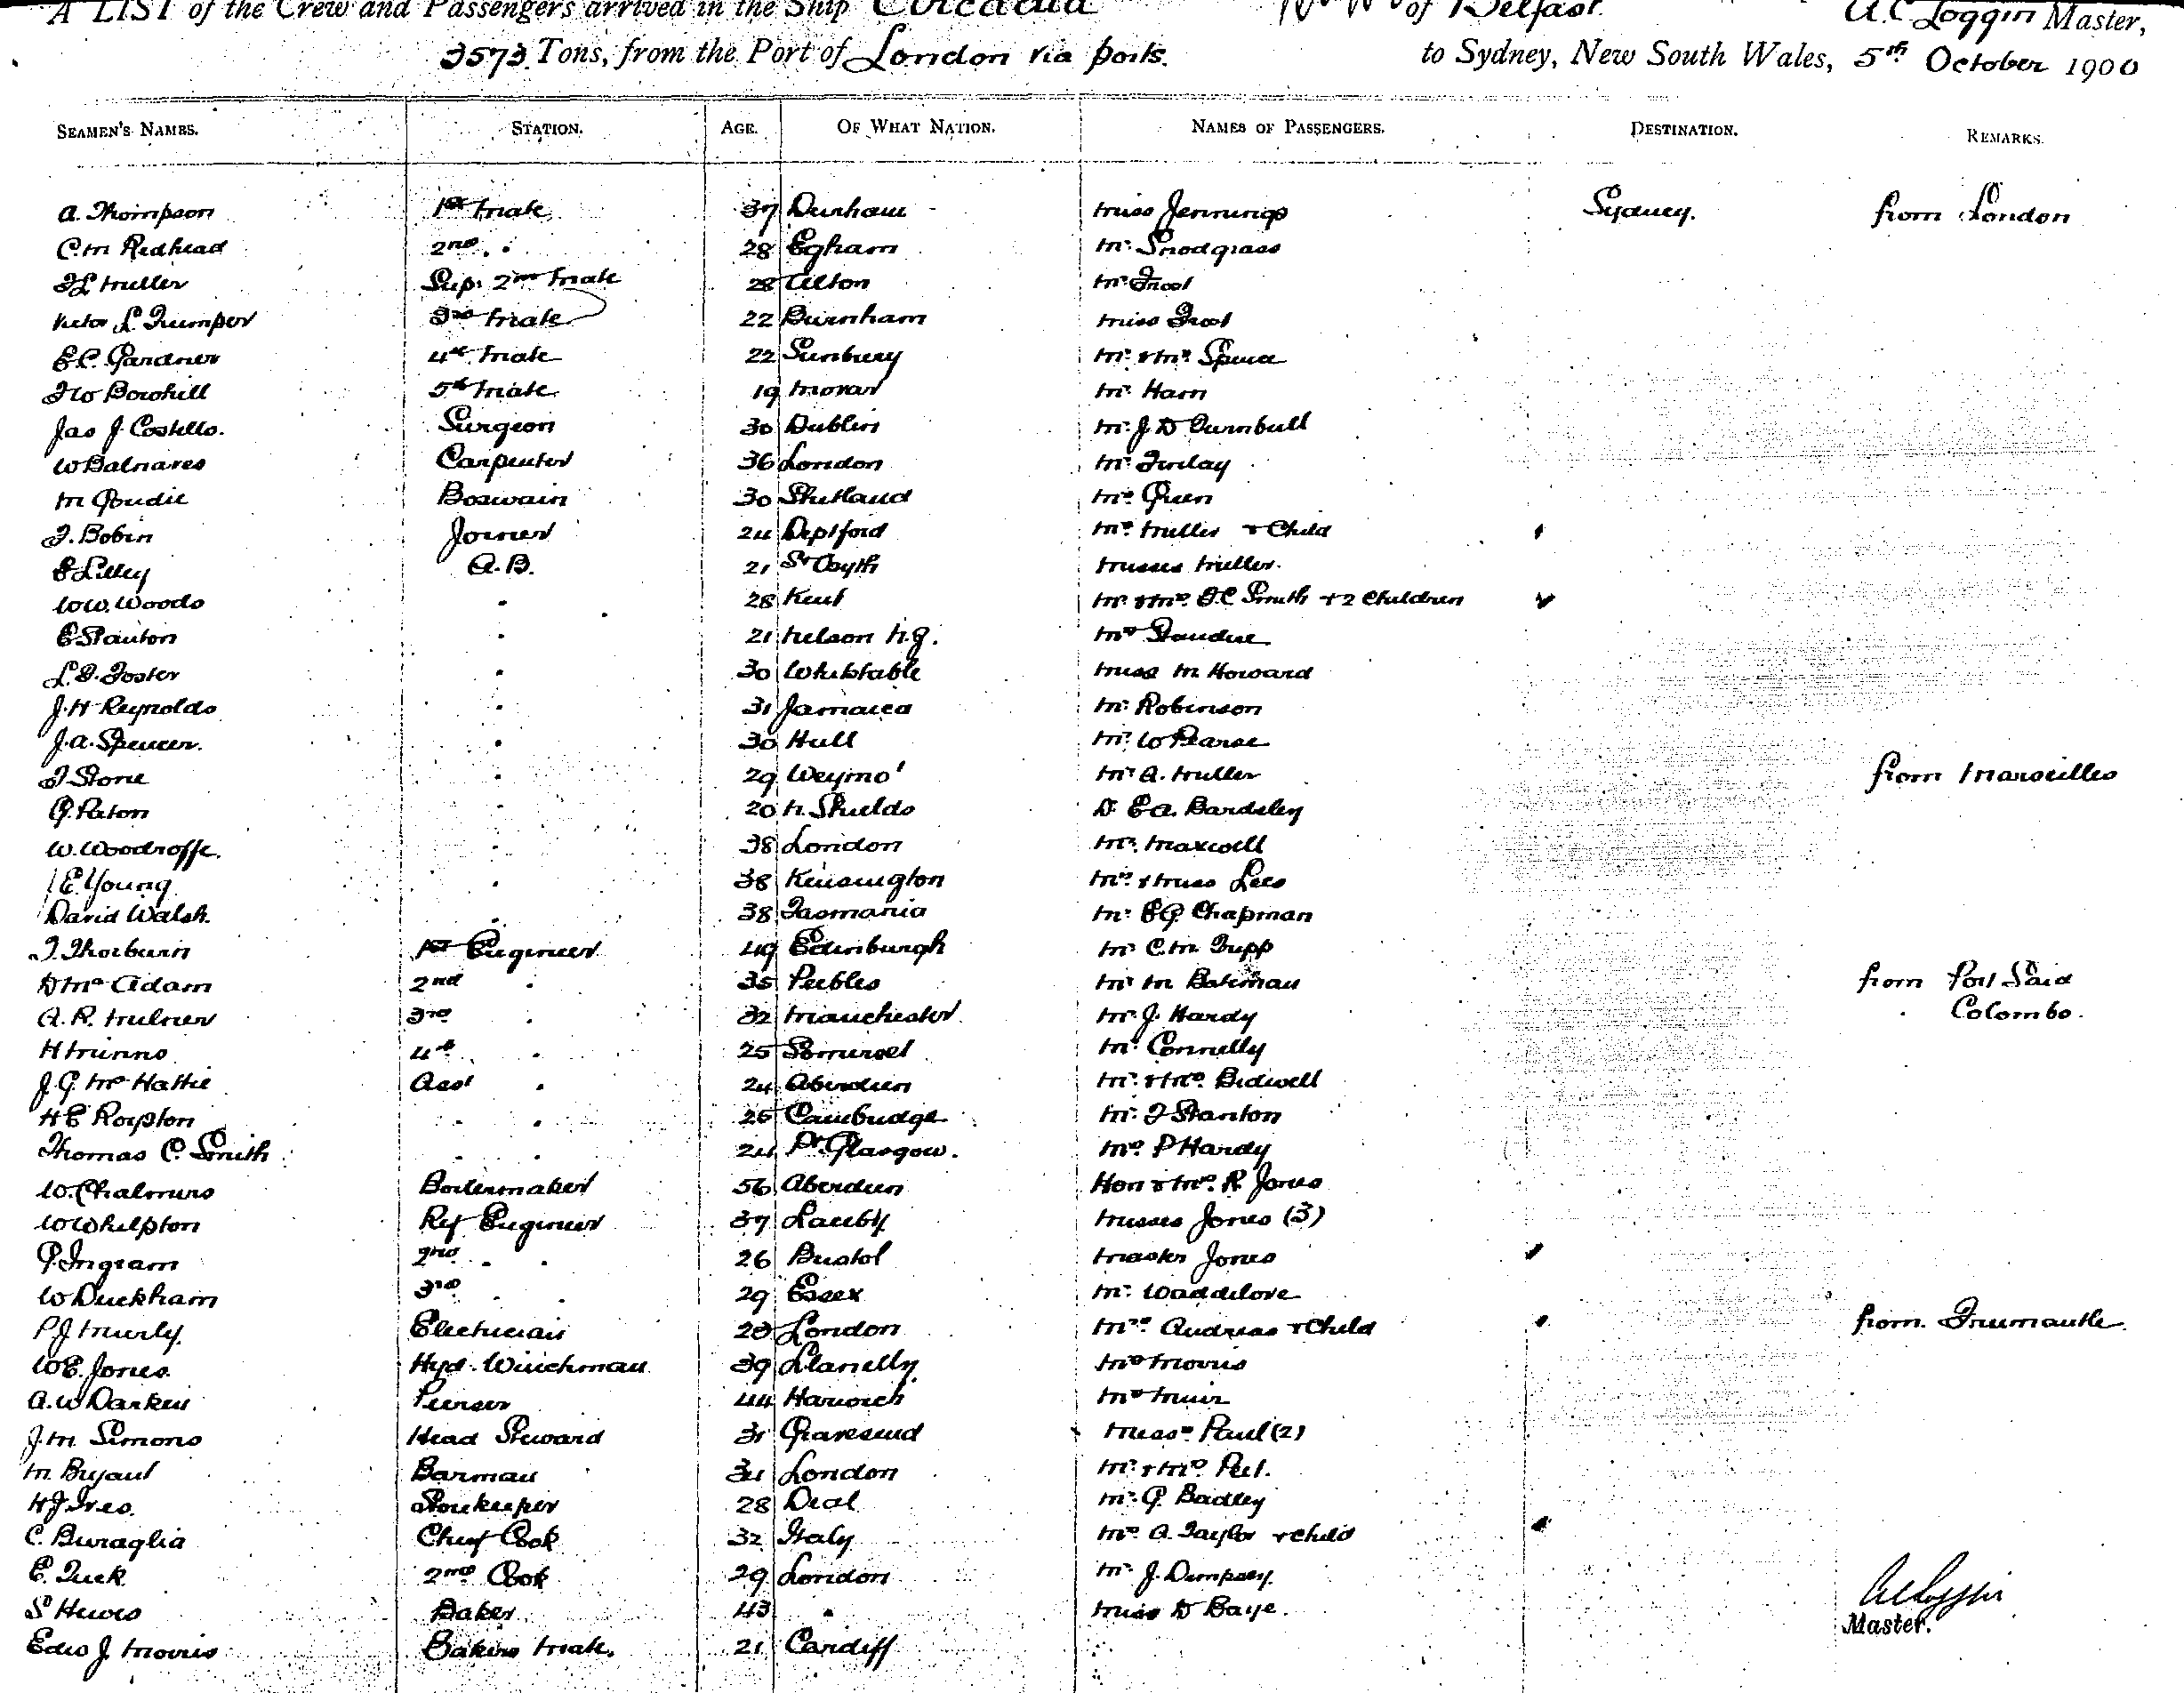 A LIST of the Crew and Passengers arrived in the Ship Arcadia of Belfast. A.C. Loggin Master,
3573 Tons, from the Port of London via ports. to Sydney, New South Wales, 5th October 1900
SEAMEN'S NAMES. STATION. AGE. OF WHAT NATION. NAMES OF PASSENGERS. DESTINATION. REMARKS.
A. Thompson 1st Mate 37 Durham Miss Jennings Sydney. from London
C.M Redhead 2nd " 28 Egham Mr. Snodgrass
F L Muller Sup: 2nd Mate 28 Alton Mr
Victor L Trumper 3rd Mate 22 Burnham Miss
E.C. Gardner 4th Mate 22 Sunbury Mr. & Mrs
F W Bowhill 5th Mate 19 Morar Mr. Ham
Jas J. Costello. Surgeon 30 Dublin Mr. J D Turnbull
W Balnaves Carpenter 36 London Mr. Finlay
M Goudie Boswain 30 Shetland Mrs Green
J. Bobin Joiner 24 Deptford Mrs Muller & Child
E Lilley A.B. 21 St Osyth Misses Muller.
W W. Woods " 28 Kent Mr. & Mrs. F.C Smith + 2 Children
E Stanton " 21 Nelson N.Z. Mrs
L. F. Foster " 30 Whitstable Miss M Howard
J. H Reynolds " 31 Jamaica Mr. Robinson
J. A. Spencer. " 30 Hull Mr. W Pearse
J Stone " 29 Weymo' Mr A. Muller from Marseilles
G. Paton " 20 N. Shields Dr E A. Bardsley
W. Woodroffe. " 38 London Mrs. Maxwell
E. Young " 38 Kensington Mrs. & Miss Lees
David Walsh. " 38 Tasmania Mr. E G. Chapman
J. Thorburn 1st Engineer 49 Edinburgh Mr C. M. Tupp
D Mc Adam 2nd " 35 Peebles Mr M Bateman from Port Said
A. R. Milner 3rd " 32 Manchester Mr. J. Hardy " Colombo.
H Munns 4th " 25 Somerset Mr. Connelly
J. G. Mc Hattie Asst " 24 Aberdeen Mr. & Mrs. Bidwell
H E Royston " " 25 Cambridge Mr. J Stanton
Thomas C. Smith " " 24 Pt Glasgow. Mrs. P Hardy
W. Chalmers Boilermaker 56 Aberdeen Hon & Mrs. R. Jones
W Whelpton Ref Engineer 37 Misses Jones (3)
G. Ingram 2nd " " 26 Bristol Master Jones
W Duckham 3rd " " 29 Essex Mr. Waddilove
P J Mierly. Electrician 28 London Mrs. Andreas & Child from Freemantle.
W E. Jones. Hyd. Winchman 39 Llanelly Mrs Morris
A. W Darken Purser 44 Harwich Mrs Muir
J. M. Simons Head Steward 31 Gravesend Misses Paul (2)
M. Bryant Barman 34 London Mr. & Mrs. Peel.
H J Ives. Storekeeper 28 Deal Mr. G. Badley
C. Buraglia Chief Cook 32 Italy Mrs. A. Taylor & Child
E. Tuck 2nd Cook 29 London Mr. J. Dempsey.
S Hewes Baker 43 " Miss D Baye. A C Loggin
Master.
Edw J. Morris Bakers Mate. 21 Cardiff